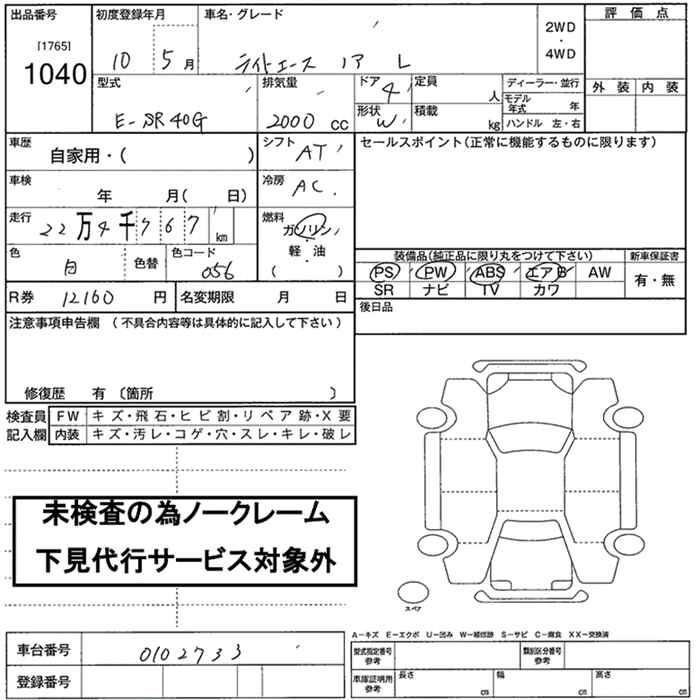 出品番号 初度登録年月 車名・グレード 評価点
[1765] 2WD
1040 10 5月 ライトエース ノア L ・
4WD
型式 排気量 ドア 4 定員 人 ディーラー・並行 外装 内装
モデル年式 年
E-SR40G 2000 cc 形状 W 積載 kg ハンドル 左・右
車歴 自家用・( ) シフト AT セールスポイント(正常に機能するものに限ります)
車検 年 月( 日) 冷房 AC
走行 22万4千767 km 燃料 ガソリン
軽・油
( )
色 白 色替 色コード 056
装備品(純正品に限り丸をつけて下さい) 新車保証書
PS PW ABS エアB AW 有・無
SR ナビ TV カワ
R券 12160 円 名変期限 月 日
後日品
注意事項申告欄 (不具合内容等は具体的に記入して下さい)
修復歴 有 〔箇所 〕
検査員 FW キズ・飛石・ヒビ割・リペア跡・X要
記入欄 内装 キズ・汚レ・コゲ・穴・スレ・キレ・破レ
未検査の為ノークレーム
下見代行サービス対象外
スペア
A－キズ E－エクボ U－凹み W－補修跡 S－サビ C－腐食 XX－交換済
車台番号 0102733
型式指定番号 参考 類別区分番号 参考
登録番号
車庫証明用 参考 長さ cm 幅 cm 高さ cm